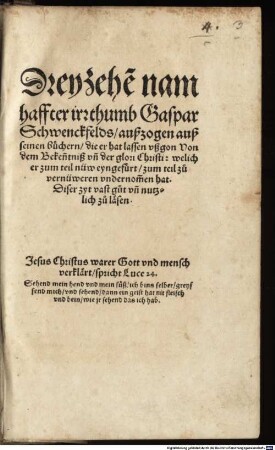 4. 3
Dreyzehẽ nam
haffter irrthumb Gaspar
Schwenckfelds/ außzogen auß
seinen bůchern/ die er hat lassen vßgon Von
dem Bekeñtniß vñ der glori Christi: welich
er zum teil nüw eyngefürt/ zum teil zů
vernüweren vndernom̃en hat.
Diser zyt vast gůt vñ nutz-
lich zů läsen.
Jesus Christus warer Gott vnd mensch
verklärt/ spricht Luce 24.
Sehend mein hend vnd mein fůß/ ich bins selber/ greyf
fend mich/ vnd sehend/ dann ein geist hat nit fleisch
vnd bein/ wie jr sehend das ich hab.